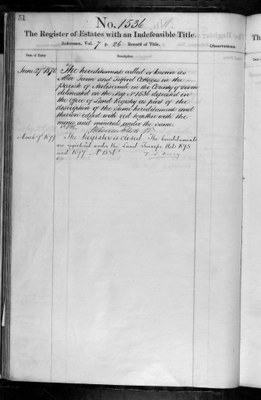 51
No. 1536
The Register of Estates with an Indefeasible Title.
Reference, Vol. 7 p. 26 Record of Title.
Observations.
Date of Entry.
Description.
June 27th 1872
The hereditament called or known as
Farm and Cottages in the
Parish of in the County of
delineated in the Map No 1536 deposited in
the Office of Land Registry as part of the
description of the same hereditament and
thereon edged with red together with the
mines and minerals under the same.
March 9th 1899
The Register is closed. The hereditaments
are registered under the Land Transfer Acts 1875
and 1897 No